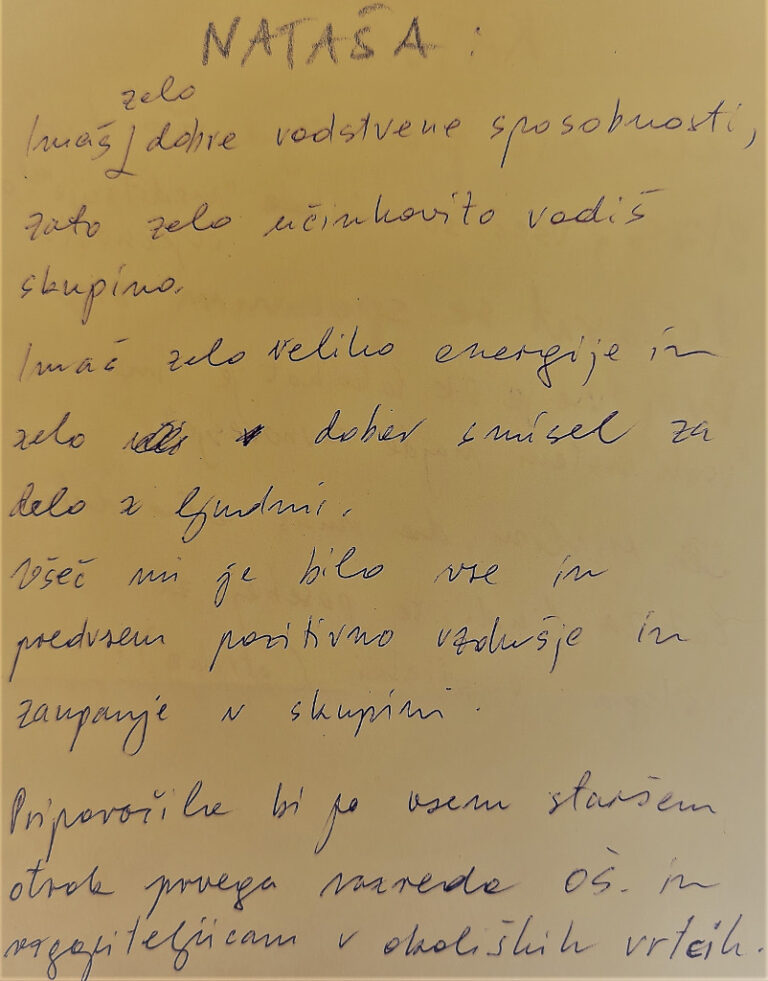 NATAŠA:
zelo
Imaš dobre vodstvene sposobnosti,
zato zelo učinkovito vodiš
skupino.
Imaš zelo veliko energije in
zelo dober smisel za
delo z ljudmi.
Všeč mi je bilo vse in
predvsem pozitivno vzdušje in
zaupanje v skupini.
Priporočila bi jo vsem staršem
otrok prvega razreda OŠ. in
vzgojiteljicam v okoliških vrtcih.